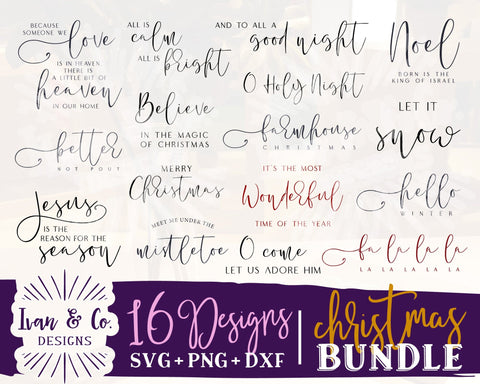 BECAUSE
SOMEONE WE
love
IS IN HEAVEN,
THERE IS
A LITTLE BIT OF
heaven
IN OUR HOME
ALL IS
calm
ALL IS
bright
AND TO ALL A
good night
Noel
BORN IS THE
KING OF ISRAEL
O Holy Night
Believe
IN THE MAGIC
OF CHRISTMAS
farmhouse
CHRISTMAS
LET IT
snow
better
NOT POUT
MERRY
Christmas
IT'S THE MOST
Wonderful
TIME OF THE YEAR
hello
WINTER
Jesus
IS THE
REASON FOR THE
season
MEET ME UNDER THE
mistletoe
O come
LET US ADORE HIM
fa la la la
LA LA LA LA LA
Ivan & Co.
DESIGNS
16 Designs
SVG + PNG + DXF
christmas
BUNDLE